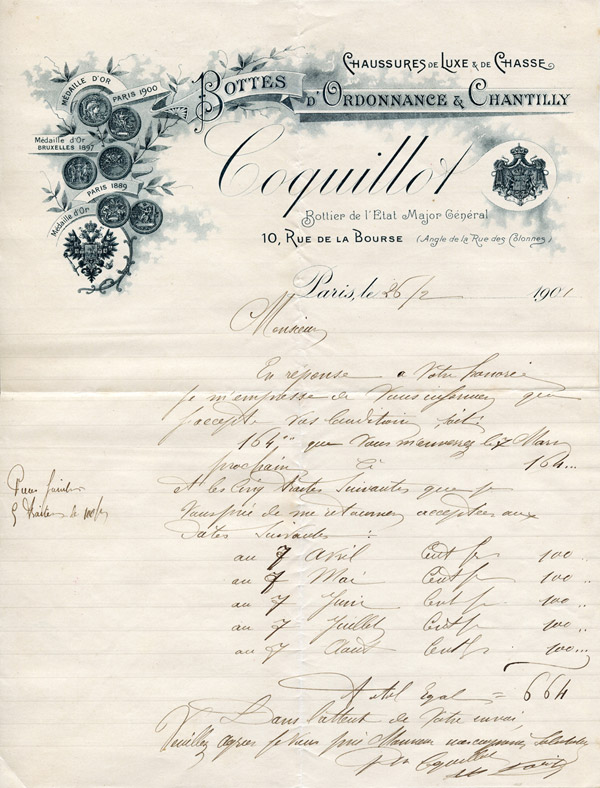 Chaussures de Luxe & de Chasse
Bottes
d'Ordonnance & Chantilly
MÉDAILLE D'OR
PARIS 1900
Médaille d'Or
BRUXELLES 1897
PARIS 1889
Médaille d'Or
Coquillot
Bottier de l'Etat Major Général
10, Rue de la Bourse (Angle de la Rue des Colonnes)
Paris, le 26/2 1901
Monsieur
En réponse a votre honorée
je m'empresse de vous informer que
j'accepte vos conditions
164 " que vous m'enverrez le 7 Mars
prochain Ci 164 ...
et les cinq traites suivantes que je
vous prie de me retourner acceptées aux
dates suivantes :
au 7 Avril Cent fr 100 ..
au 7 Mai Cent fr 100 ..
au 7 Juin Cent fr 100 ..
au 7 Juillet Cent fr 100 ..
au 7 Aout Cent fr. 100 ...
Total Egal = 664
Dans l'attente de votre envoi,
Veuillez agréer je vous prie Monsieur salutations
Coquillot
5 traites de 100 fr